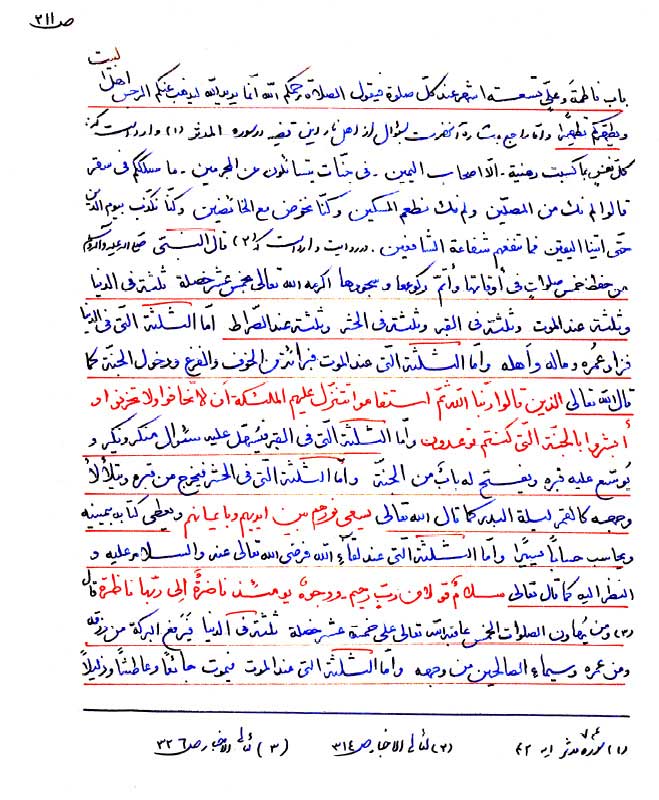 ص ٣١١
باب فاطمة و علیّ تسعة اشهر عند کلّ صلوة فیقول الصلاة رحمکم الله انّما یرید الله لیذهب عنکم الرجس اهل البیت
و یطهّرکم تطهیرًا و امّا راجع باشاره آنحضرت بسؤال از اهل نار این قضیه در سوره المدثر (١) وارد است که:
کلّ نفس بما کسبت رهینة - الّا اصحاب الیمین - فی جنّات یتسائلون عن المجرمین - ما سلککم فی سقر
قالوا لم نک من المصلّین ولم نک نطعم المسکین و کنّا نخوض مع الخائضین وکنّا نکذّب بیوم الدین
حتّی اتینا الیقین فما تنفعهم شفاعة الشافعین . در روایت وارد است که (٢) قال النبیّ صلی الله علیه وآله وسلم
من حفظ خمس صلوات فی أوقاتها وأتمّ رکوعها و سجودها اکرمه الله تعالی بخمس عشر خصلة ثلثة فی الدنیا
و ثلثة عند الموت وثلثة فی القبر وثلثة فی الحشر وثلثة عند الصّراط امّا الثلثة الّتی فی الدنیا
فزاد عمره وماله وأهله وامّا الثلثة الّتی عند الموت فبرائة من الخوف والفزع ودخول الجنّة کما
قال الله تعالی الّذین قالوا ربّنا الله ثمّ استقاموا تتنزّل علیهم الملئکة أن لا تخافوا ولا تحزنوا و
أبشروا بالجنّة الّتی کنتم توعدون وامّا الثلثة الّتی فی القبر فیسهّل علیه سئوال منکر ونکیر و
یوسّع علیه قبره ویفتح له باب من الجنّة وامّا الثلثة الّتی فی الحشر فیخرج من قبره ویتلألأ
وجهه کالقمر لیلة البدر کما قال الله تعالی یسعی نورهم بین ایدیهم وبایمانهم ویعطی کتابه بیمینه
ویحاسب حسابًا یسیرًا وامّا الثلثة الّتی عند لقاء الله فرضی الله تعالی عنه والسلام علیه و
النظر الیه کما قال تعالی سلام قولا من ربّ رحیم - ووجوه یومئذ ناضرة إلی ربّها ناظرة قال
(٣) ومن یهاون الصلوات الخمس عاقبه الله تعالی علی خمسة عشر خصلة ثلثة فی الدنیا یرفع البرکة من رزقه
ومن عمره وسیماء الصالحین من وجهه وامّا الثلثة الّتی عند الموت فیموت جائعًا وعاطشًا وذلیلًا
(١) سوره مدثر آیه ٤٢ (٢) لئالی الاخبار ص ٣١٤ (٣) لئالی الاخبار ص ٣٢٦